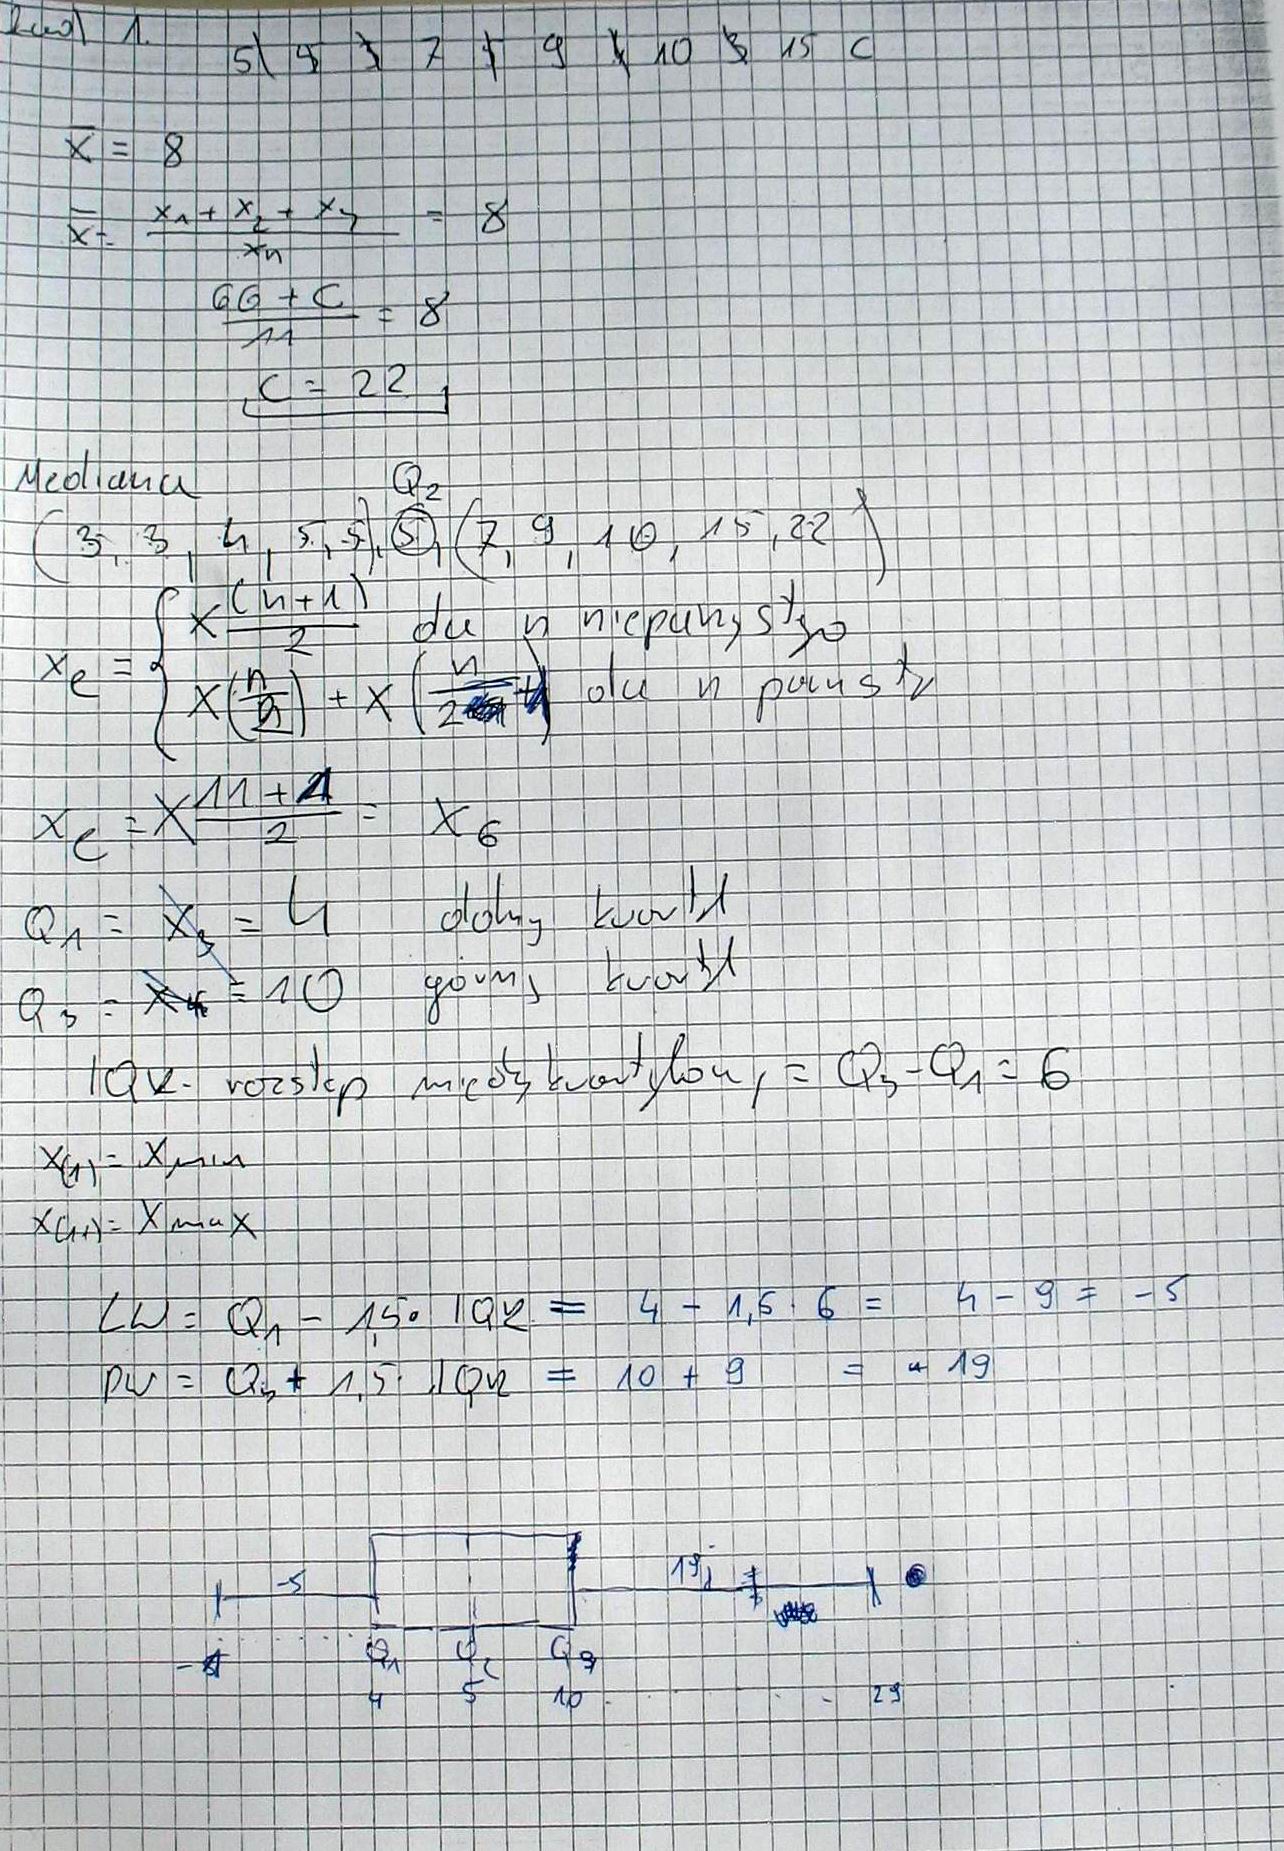 Zad 1.
5 4 3 7 5 9 5 10 3 15 C
x̄ = 8
x̄ = (x₁ + x₂ + x₃) / xₙ = 8
(66 + C) / 11 = 8
C = 22
Mediana Q₂
(3, 3, 4, 5, 5), 5, (7, 9, 10, 15, 22)
xₑ = { x (n+1)/2 dla n nieparzystego
x(n/2) + x(n/2 + 1) dla n parzysty
xₑ = x (11+1)/2 = x₆
Q₁ = x₃ = 4 dolny kwartyl
Q₃ = = 10 górny kwartyl
IQR - rozstęp międzykwartylowy = Q₃ - Q₁ = 6
x(1) = xmin
x(n) = xmax
LW = Q₁ - 1,5 · IQR = 4 - 1,5 · 6 = 4 - 9 = -5
PW = Q₃ + 1,5 · IQR = 10 + 9 = 19
-5 19
Q₁ Q₂ Q₃
4 5 10 29